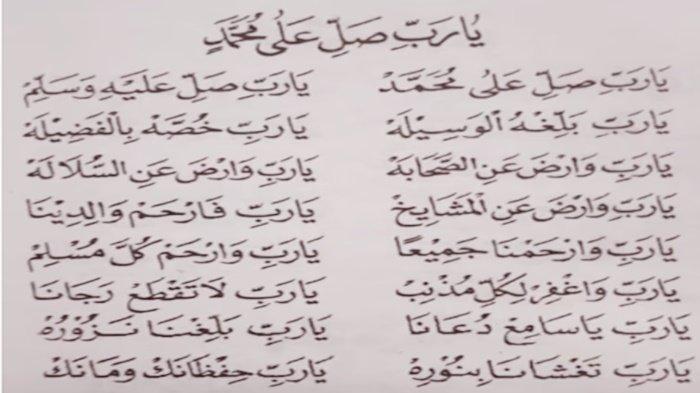 يَارَبِّ صَلِّ عَلٰى مُحَمَّدٍ
يَارَبِّ صَلِّ عَلٰى مُحَمَّدْ يَارَبِّ صَلِّ عَلَيْهِ وَسَلِّمْ
يَارَبِّ بَلِّغْهُ الْوَسِيْلَهْ يَارَبِّ خُصَّهْ بِالْفَضِيْلَهْ
يَارَبِّ وَارْضَ عَنِ الصَّحَابَهْ يَارَبِّ وَارْضَ عَنِ السُّلَالَهْ
يَارَبِّ وَارْضَ عَنِ الْمَشَايِخْ يَارَبِّ فَارْحَمْ وَالِدِيْنَا
يَارَبِّ وَارْحَمْنَا جَمِيْعًا يَارَبِّ وَارْحَمْ كُلَّ مُسْلِمْ
يَارَبِّ وَاغْفِرْ لِكُلِّ مُذْنِبْ يَارَبِّ لَا تَقْطَعْ رَجَانَا
يَارَبِّ يَاسَامِعْ دُعَانَا يَارَبِّ بَلِّغْنَا نَزُوْرُهْ
يَارَبِّ تَغْشَانَا بِنُوْرِهْ يَارَبِّ حِفْظَانَكْ وَمَانَكْ